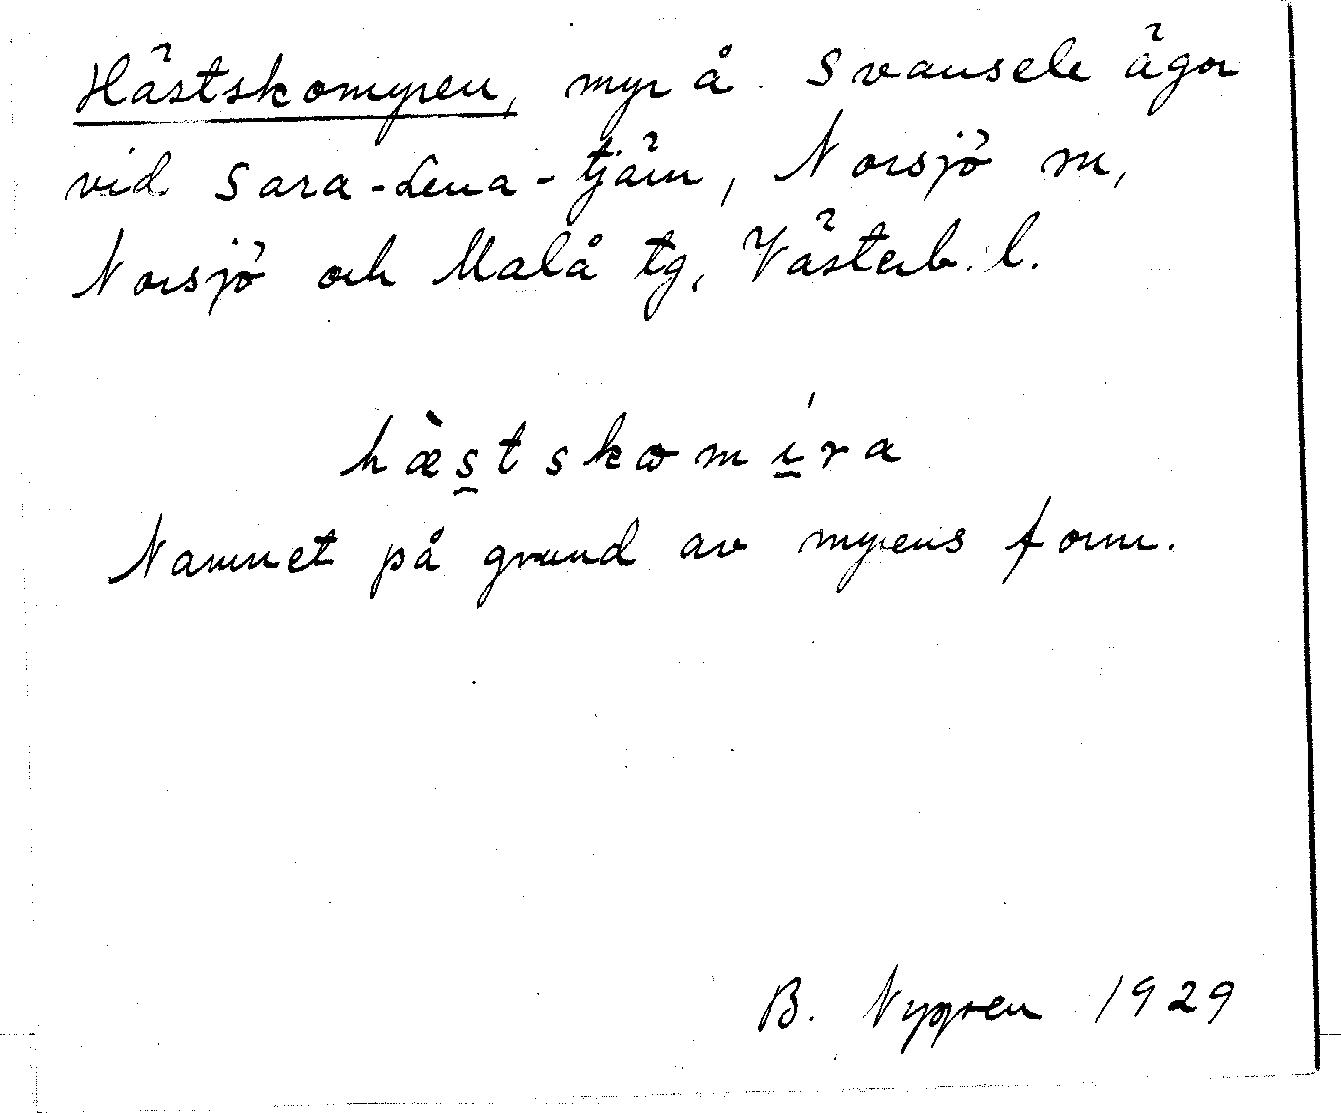 Hästskomyren, myr å Svansele ägor
vid Sara-Lena-tjärn, Norsjö sn,
Norsjö och Malå tg, Västerb. l.
hæ̀s̯tskomı̱́ra
Namnet på grund av myrens form.
B. Nygren 1929